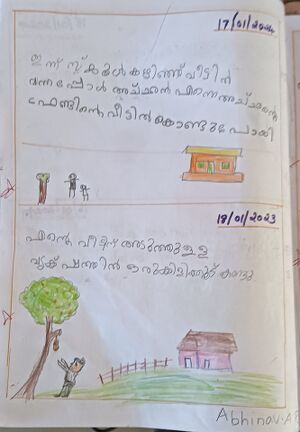 17/01/2024
ഇന്ന് സ്കൂൾ കഴിഞ്ഞ് വീട്ടിൽ
വന്നപ്പോൾ അച്ഛൻ എന്നെ അച്ഛന്റെ
ഫ്രണ്ടിന്റെ വീട്ടിൽ കൊണ്ടുപോയി
18/01/2023
എന്റെ വീടിന് അടുത്തുള്ള
വൃക്ഷത്തിൽ ഒരു കിളിക്കൂട് കണ്ടു
Abhinav.A